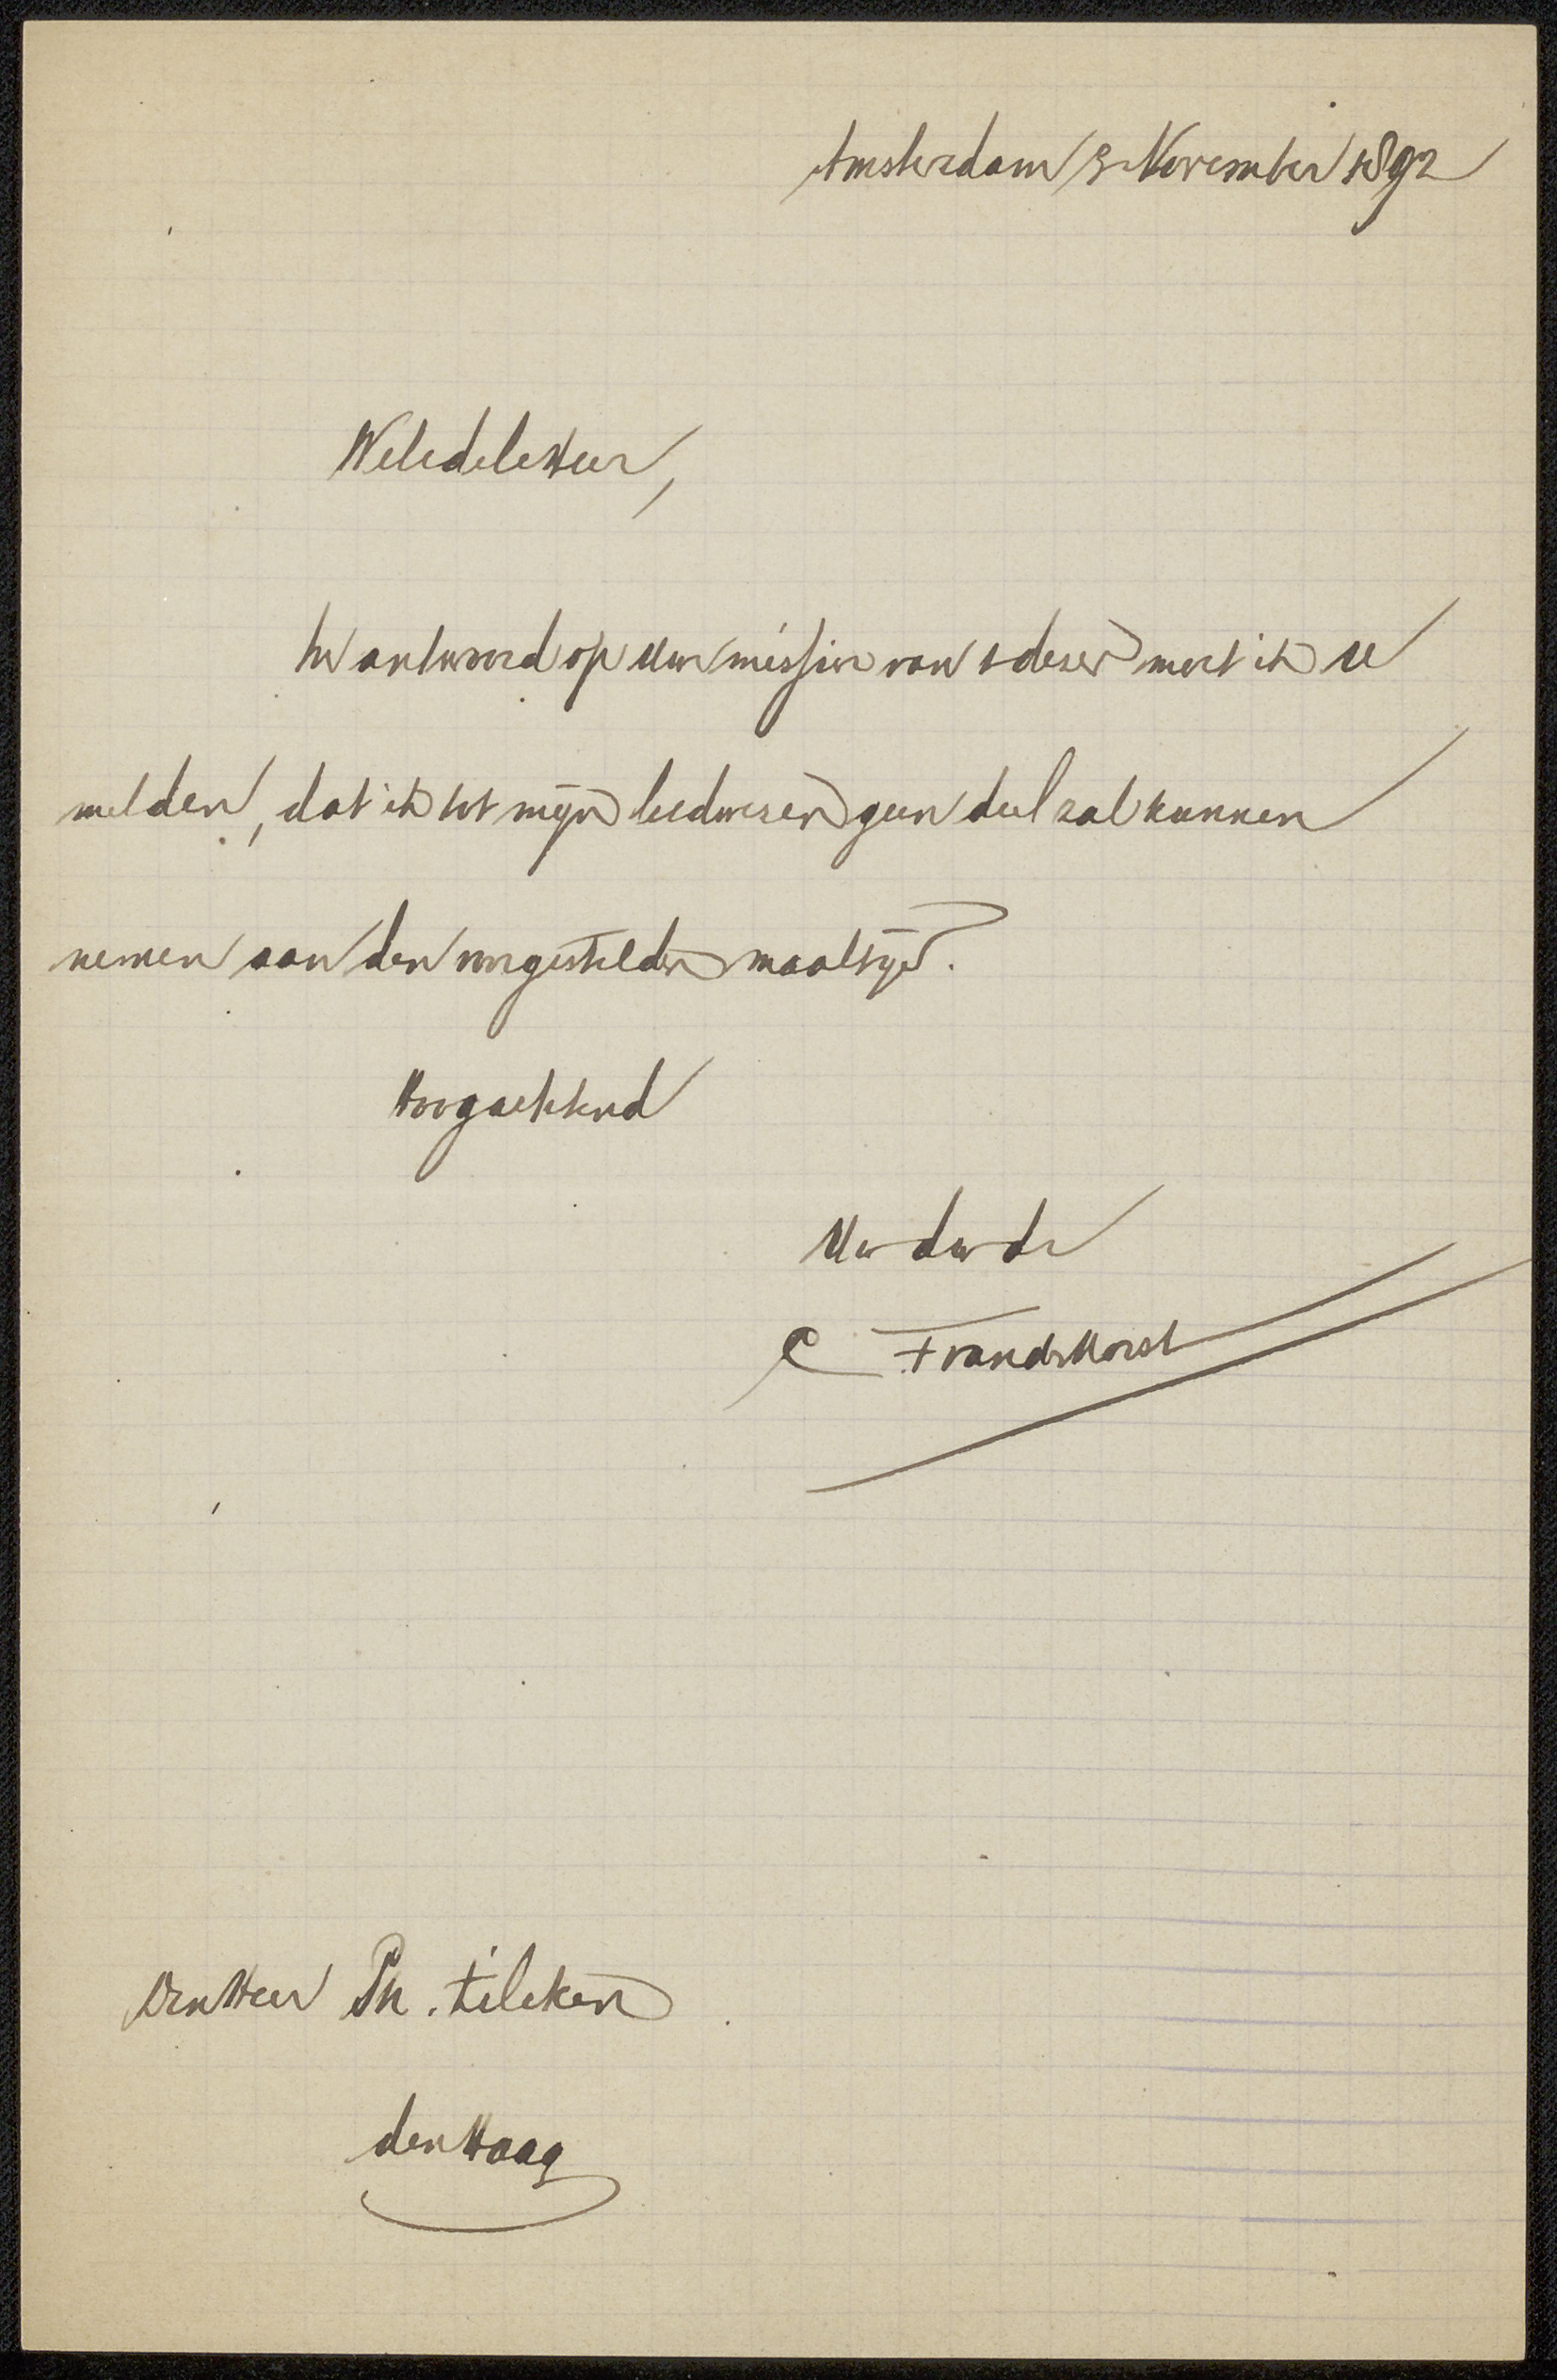 Amsterdam 3 November 1892
Weledele Heer,
In antwoord op Uw missive van 1 dezer moet ik U
melden, dat ik tot mijn leedwezen geen deel zal kunnen
nemen aan den voorgestelden maaltijd.
Hoogachtend
Uw dw dr
C
Den Heer Ph. Zilcken
den Haag